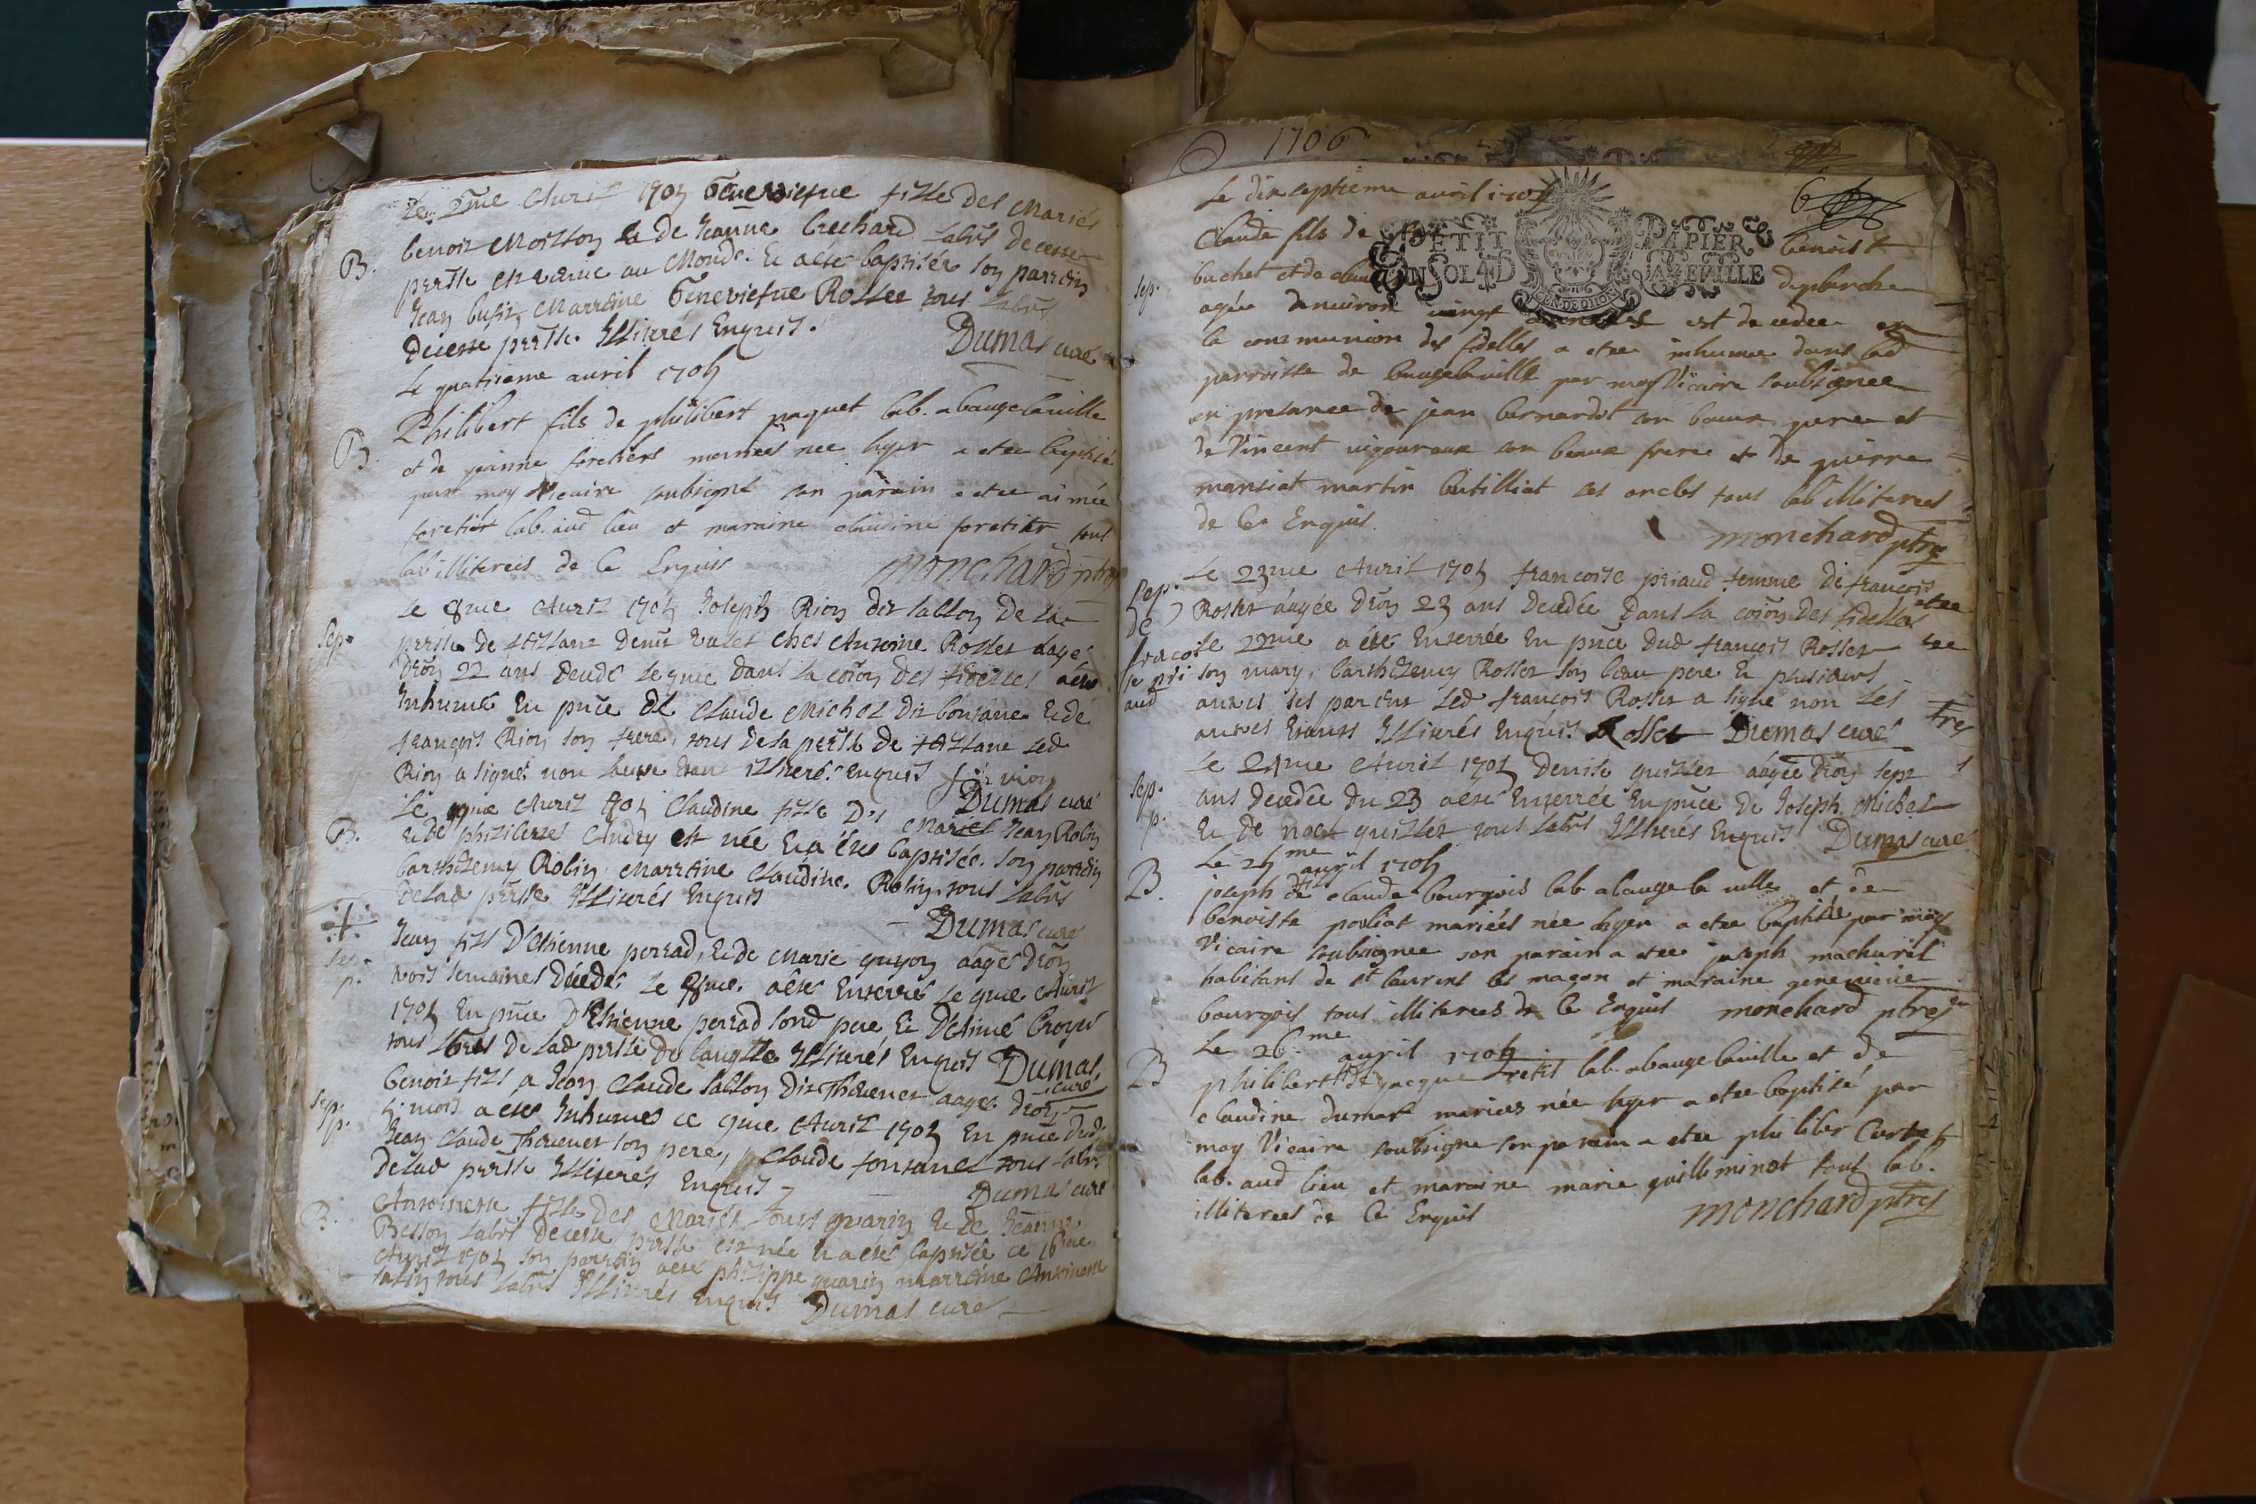 Le 2me Avril 1705 Geneviefue fille des Mariés
B. benoit Moisson & de Jeanne brechard labrs de cette
persse est venüe au Monde. Et a ésté baptisée son parrain
Jean busin Marraine Geneviefue Rosset tous labrs
de cette persse. Illitrés Enquis.
Dumas curé
Le quatrieme avril 1705
B Philibert fils de philibert paquet lab. a baugelaville
et de jeanne foretiers mariees nee hyer a etee baptisé
par moy Vicaire soubsigné son parain a etee aimée
foretier lab. aud lieu et maraine claudine foretier tous
lab illiterees de Ce Enquis
monchard ptre
Le 8me Avril 1705 Joseph Rion dit lallon de la
sep. persse de fillane denit valet ches Antoine Rosset aagé
d'ron 22 ans decede le 7me dans la coion des fidelles a été
Inhumé En pnce de Claude Michel dit bontane Et de
françois Rion son frere, tous de la persse de fillane led
Rion a signé non lautre Illitere Enquis f. rion
Dumas curé
B. Le 9me Avril 1705 Claudine fille Des Mariés Jean Robin
Et de philiberte Andry est née Et a éste baptisée. son parrain
barthelemy Robin, Marraine Claudine Robin, tous labrs
de lad persse Illitrés Enquis
Dumas curé
sep. Jean fils D'Etienne perrad, Et de Marie guyon aagé d'ron
trois semaines decedé le 8me. a esté Enterré le 9me Avril
1705 En pnce D'Estienne perrad sond pere Et D'Aimé
tous labrs de lad persse Illitrés Enquis Dumas
curé
sep. benoit fils a Jean Claude lallon dit Thevenet aagé d'ron
5 mois a éste Inhumé ce 9me Avril 1705 En pnce dud
Jean Claude Thevenet son pere, Claude fontanel tous labrs
de lad persse Illiterés Enquis
Dumas curé
B. Antoinette fille des Mariés Louis guarin Et de Jeanne
Besson labrs de cette persse est née Et a éste baptisée ce 16me
Avril 1705 son parrain a esté philippe guarin marraine Antoinette
tous labrs Illitrés Enquis Dumas curé
1706
6
Le dix septieme avril 1705
PETIT PAPIER
UN SOL 4 D LA FEVILLE
GEN DE DIION
Claude fils de benoist
sep. buchet et de
agée denviron vingt est decedee en
la communion des fidelles a etee inhumee dans lad
parroisse de baugelaville par moy Vicaire soubsignee
en presance de jean bernardot son beaux pere et
de Vincent vigouraux son beaux frere et de pierre
mansiat martin butilliat ses oncles tous lab illiterees
de Ce Enquis.
monchard ptre
Sep. de francoise priaud
Le 23me Avril 1705 francoise priaud femme de francois
Rosset aagée d'ron 23 ans decedée dans la coion des fidelles
le 22me a été Enterrée En pnce dud françois Rosset
son mary, barthelemy Rosset son beau pere Et plusieurs
autres ses parens led françois Rosset a signé non les
autres Illitrés Enquis. Rosset Dumas curé
Sep. Le 24me Avril 1705 denise guillet aagée d'ron sept
ans decedée du 23 a esté Enterrée En pnce de Joseph Michel
Et de noel guillet tous labrs Illiterés Enquis Dumas curé
Le 25me avril 1705
B. joseph fils de claude bourgois lab a bauge la ville et de
benoiste poliat mariées nee hyer a etee baptisée par moy
Vicaire soubsignee son parain a etee joseph machurel
habitant de st laurent les macon et maraine genevieve
bourgois tous illiterees de Ce Enquis monchard ptre
Le 26.me avril 1705
B philibert fils de jacque lab. a baugelaville et de
claudine dumas mariees née hyer a etee baptisé par
moy Vicaire soubsigne son parain a etee philiber Curtet
lab. aud lieu et maraine marie guilleminot tous lab.
illiterees de Ce Enquis
monchard ptre